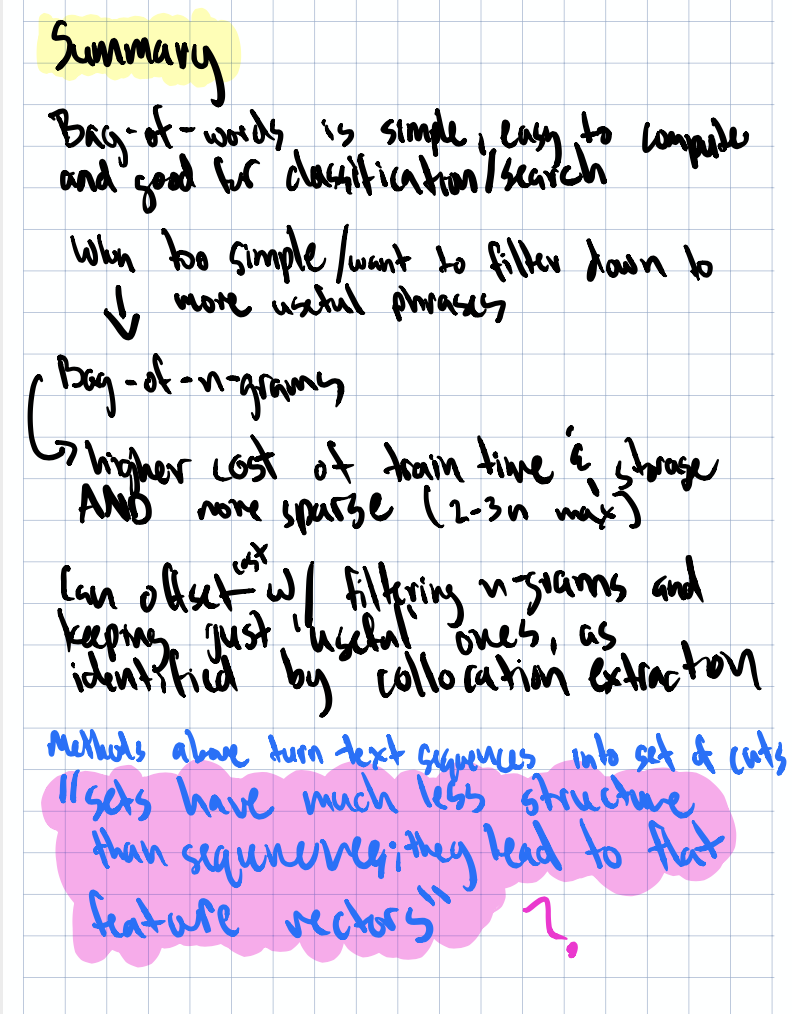 Summary
Bag-of-words is simple, easy to compute
and good for classification/search
When too simple/want to filter down to
more useful phrases
↓
Bag-of-n-grams
→ higher cost of train time & storage
AND more sparse (2-3n max)
cost
Can offset w/ filtering n-grams and
keeping just "useful" ones, as
identified by collocation extraction
Methods above turn text sequences into set of cnts
"sets have much less structure
than sequences; they lead to flat
feature vectors" ?